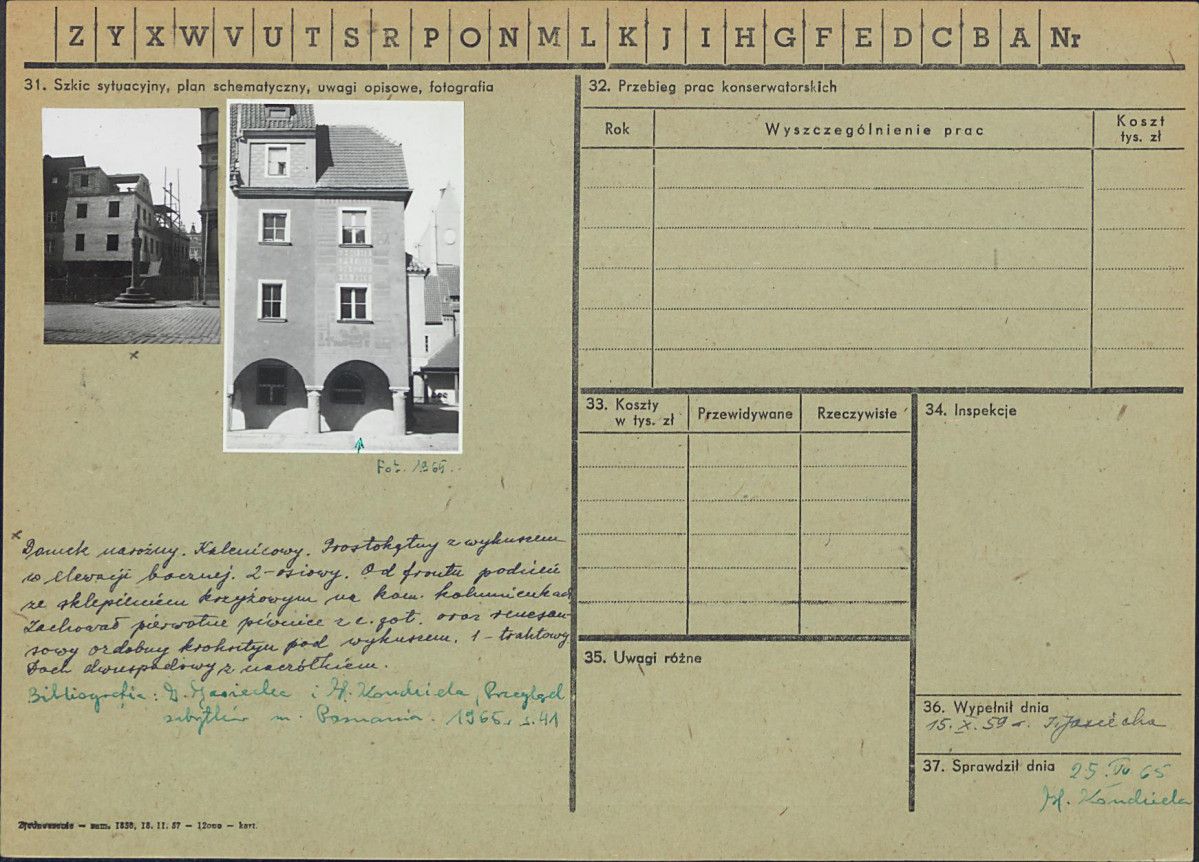 Z Y X W V U T S R P O N M L K J I H G F E D C B A Nr
31. Szkic sytuacyjny, plan schematyczny, uwagi opisowe, fotografia
×
Fot. 1965.
× Domek narożny. Kalenicowy. Prostokątny z wykuszem
w elewacji bocznej. 2-osiowy. Od frontu podcień
ze sklepieniem krzyżowym na kam. kolumienkach
Zachował pierwotne piwnice z c. got. oraz renesan-
sowy ozdobny kroksztyn pod wykuszem. 1-traktowy
Dach dwuspadowy z naczółkiem.
Bibliografia: D. Jasiecka i H. Kondziela, Przegląd
zabytków m. Poznania. 1965. s. 41
32. Przebieg prac konserwatorskich
Rok
Wyszczególnienie prac
Koszt
tys. zł
33. Koszty
w tys. zł
Przewidywane
Rzeczywiste
34. Inspekcje
35. Uwagi różne
36. Wypełnił dnia
15. X. 59 r. Jasiecka
37. Sprawdził dnia 25. IV. 65
H. Kondziela
zam. 1858, 16. 11. 57 — — kart.